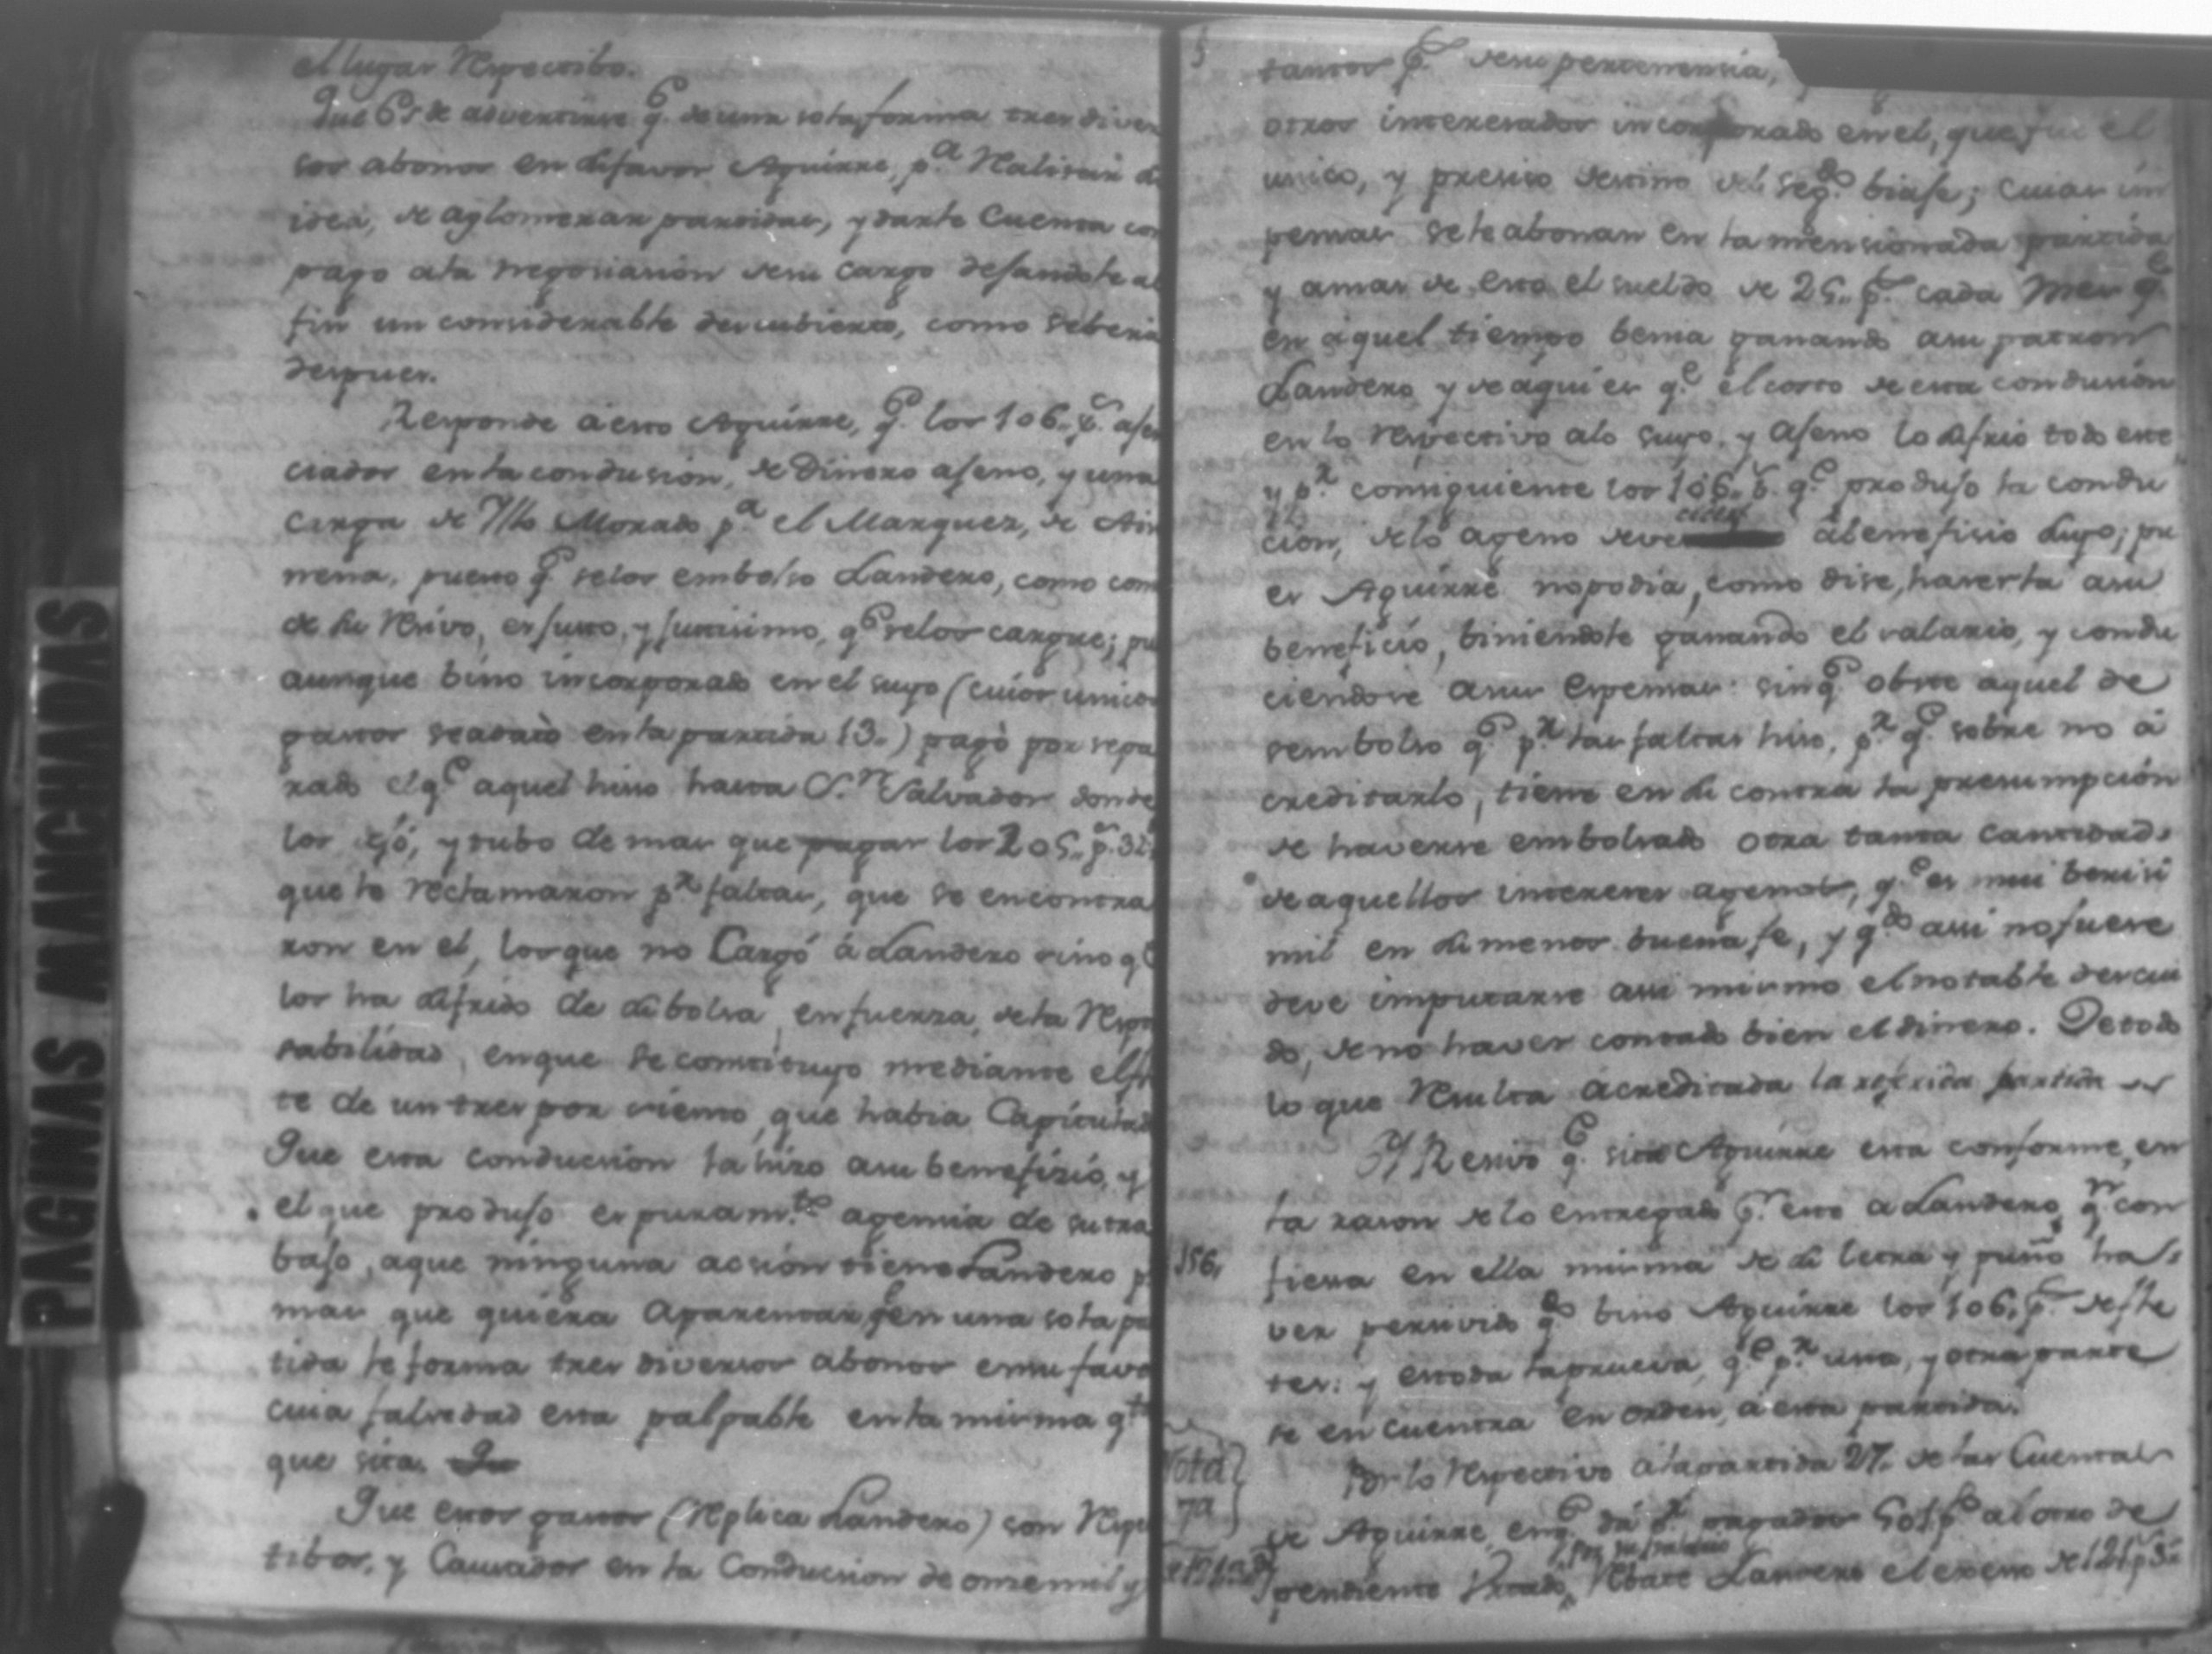 el lugar Respectibo.
Que es de advertirse q.e de una sola forma tres diver
sos abonos en su favor Aguirre, p.a Realisar su
idea, de aglomerar partidas, y darle Cuenta con
pago ala negosiasion de su cargo dejandole al
fin un considerable descubierto, como se bera
despues.
Responde á esto Aguirre, q.e los 106. p.s
en la condusion, de Dinero ajeno, y una
Carga de Ylo Morado p.a el Marquez, de
nena, puesto q.e se los embolso Landero, como
de su Resivo, es justo, y justisimo, q.e se los cargue; pu
aunque bino incorporado en el suyo (cuios unicos
gastos se adató en la partida 13.) pagó por sepa
rado el q.e aquel hiso hasta S.n Salvador donde
los dejó, y tubo de mas que pagar los 205. p.s 3
que le reclamaron p.r faltas, que se encontra
ron en el, los que no Cargó á Landero sino q.e
los ha sufrido de su bolsa, en fuerza, de la Respo
sabilidad, en que se constituyo mediante el fle
te de un tres por siento, que habia Capitulad
Que esta conducsion la hizo asu benefizio, y
el que produjo es puram.te agensia de su tra
bajo, aque ninguna acsion tiene Landero p
mas que quiera Aparentar q.e en una sola pa
tida se forma tres diversos abonos en su favo
cuia falsedad esta palpable en la misma q.ta
que sita.
Que estos gastos (Replica Landero) son Respe
tibos, y Causados en la Conducsion de onsemil y
tantos p.s de su pertenensia,
otros interesados incorporado en el, que fue el
unico, y presiso destino del seg.do biaje; cuias es
pensas se le abonan en la mensionada partida
y amas de esto el sueldo de 25. p.s cada Mes q.e
en aquel tiempo benia ganando asu patron
Landero y de aqui es q.e el costo de esta condusion
en lo respectivo alo suyo, y Ajeno lo sufrio todo este
y p.r consiguiente los 106. p.s q.e produjo la condu
cion, de lo ageno deve ceder á beneficio suyo; pu
es Aguirre no podia, como dise, haserla asu
beneficio, biniendole ganando el salario, y condu
ciendose asus espensas: sin q.e obste aquel de
sembolso q.e p.r las faltas hiso, p.r q.e sobre no á
creditarlo, tiene en su contra la presumpción
de haverse embolsado otra tanta cantidad
de aquellos intereses agenos, q.e es mui berisi
mil en su menos buena fe, y q.do asi no fuese
deve imputarse asi mismo el notable descui
do, de no haver contado bien el dinero. De todo
lo que Resulta acreditada la referida partida
El Resivo q.e sita Aguirre esta conforme, en
la razon de lo entregado p.r este a Landero, q.n con
fiesa en ella misma de su letra y puño ha
ver persivido q.do bino Aguirre los 106. p.s de fle
tes: y es toda la prueva, q.e p.r una, y otra parte
se encuentra en orden, á esta partida.
156,
Nota
7a
Por lo Respectivo ala partida 27. de las Cuentas
de Aguirre, en q.e dá p.r pagados 501 p.s al otro de
por su salario
pendiente Rebate Landero el exceso de 121 p.s 3